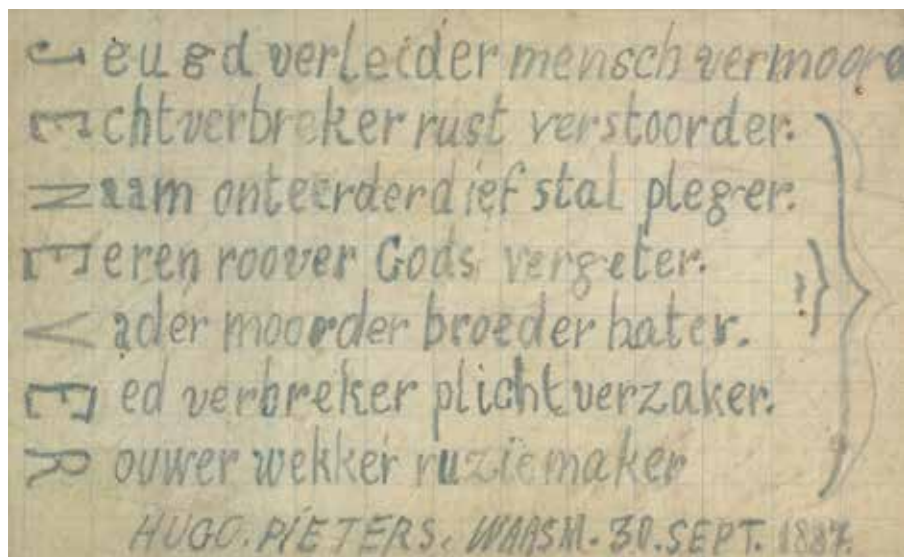 Jeugd verleider mensch vermoord
Echtverbreker rust verstoorder.
Naam onteerder dief stal pleger.
Eeren roover Gods vergeter.
Vader moorder broeder hater.
Eed verbreker plicht verzaker.
Rouwer wekker ruziemaker
HUGO. PIETERS. WAASM. 30. SEPT.